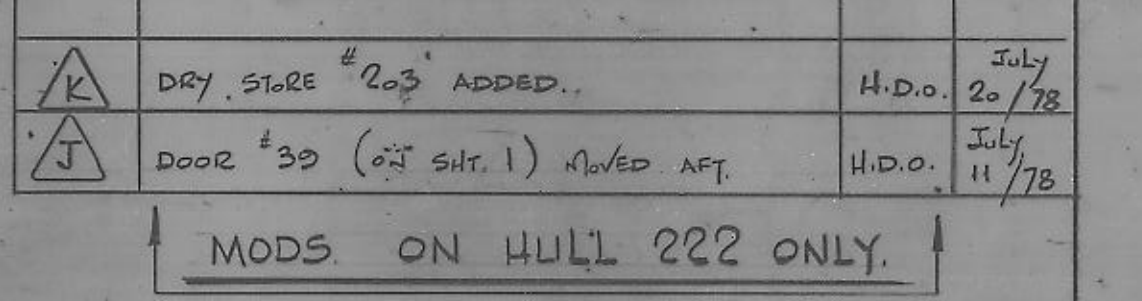 K DRY STORE #203 ADDED. H.D.O. July 20/78
J DOOR #39 (ON SHT. 1) MOVED AFT. H.D.O. July 11/78
MODS. ON HULL 222 ONLY.